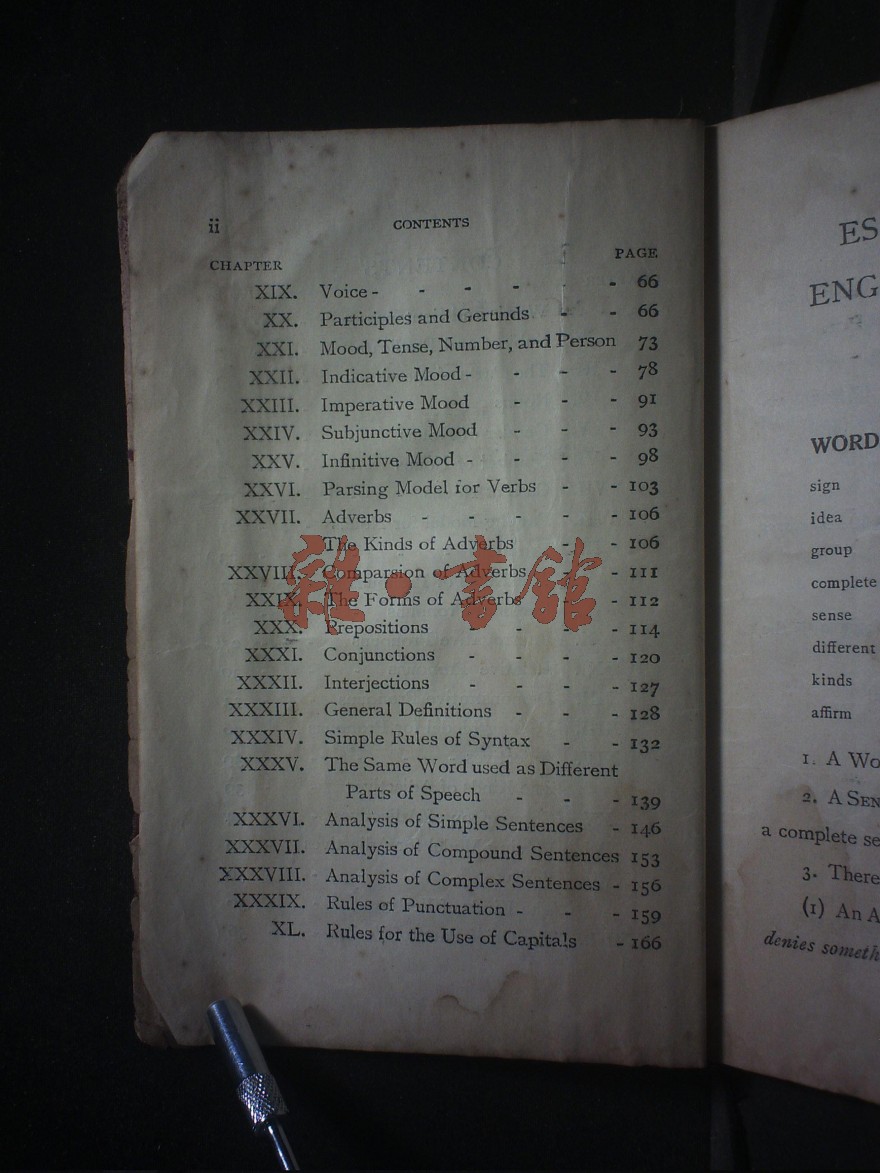 ii CONTENTS
CHAPTER PAGE
XIX. Voice - - - - - - 66
XX. Participles and Gerunds - - 66
XXI. Mood, Tense, Number, and Person 73
XXII. Indicative Mood - - - - 78
XXIII. Imperative Mood - - - 91
XXIV. Subjunctive Mood - - - 93
XXV. Infinitive Mood - - - - 98
XXVI. Parsing Model for Verbs - - 103
XXVII. Adverbs - - - - - 106
The Kinds of Adverbs - - 106
XXVIII. Comparsion of Adverbs - - 111
XXIX. The Forms of Adverbs - - 112
XXX. Prepositions - - - - 114
XXXI. Conjunctions - - - - 120
XXXII. Interjections - - - - 127
XXXIII. General Definitions - - - 128
XXXIV. Simple Rules of Syntax - - 132
XXXV. The Same Word used as Different
Parts of Speech - - - 139
XXXVI. Analysis of Simple Sentences - 146
XXXVII. Analysis of Compound Sentences 153
XXXVIII. Analysis of Complex Sentences - 156
XXXIX. Rules of Punctuation - - - 159
XL. Rules for the Use of Capitals - 166
雜·書館
ES
ENG
WORD
sign
idea
group
complete
sense
different
kinds
affirm
1. A Wo
2. A SEN
a complete se
3. There
(1) An A
denies someth